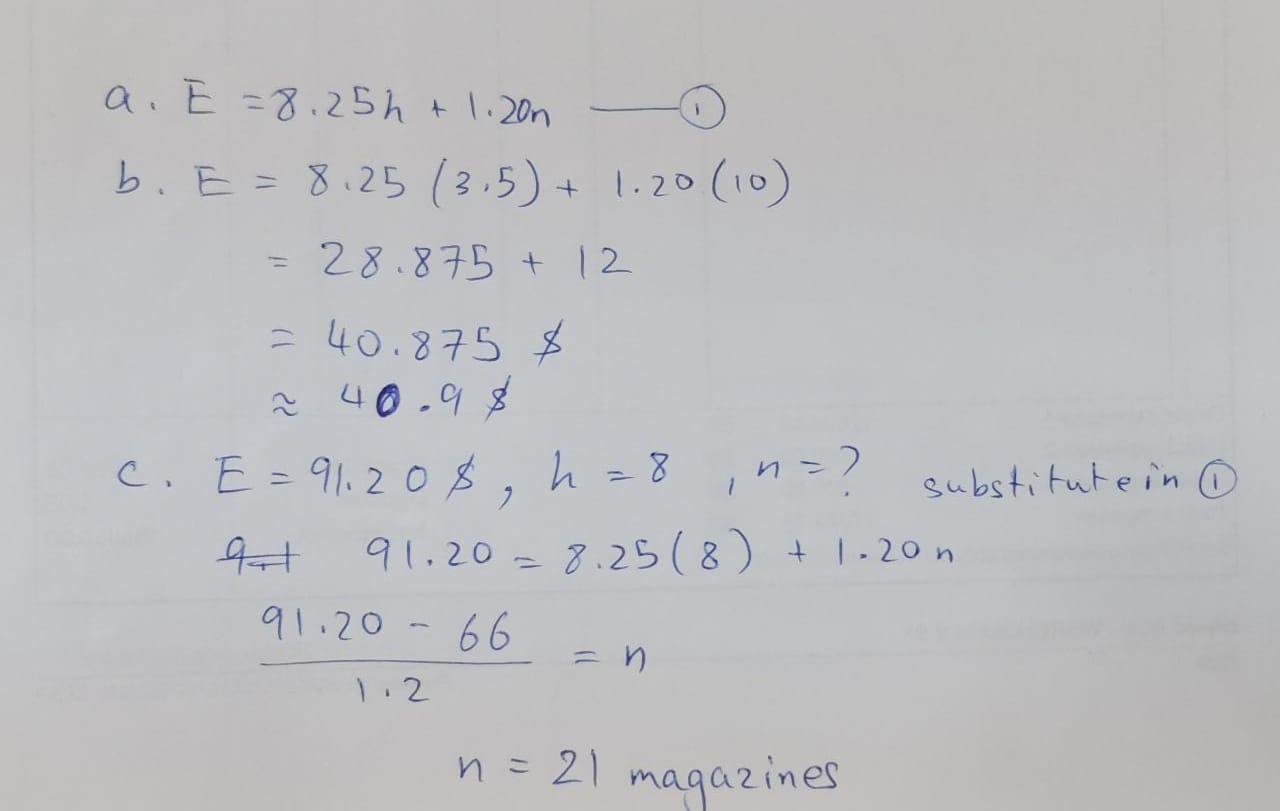 a. E = 8.25h + 1.20n ①
b. E = 8.25 (3.5) + 1.20 (10)
= 28.875 + 12
= 40.875 $
≈ 40.9 $
c. E = 91.20 $, h = 8, n = ? substitute in ①
91.20 = 8.25(8) + 1.20 n
91.20 - 66
1.2
= n
n = 21 magazines